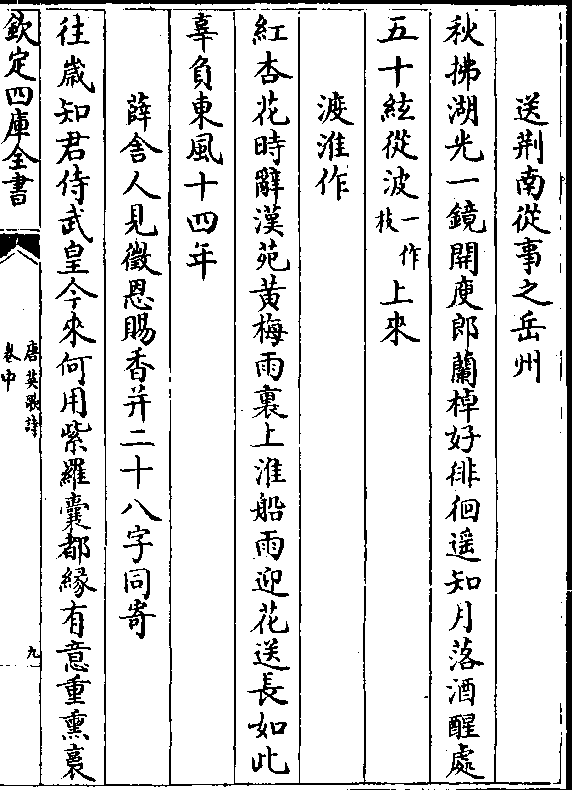 送荆南從事之岳州
秋拂湖光一鏡開庾郎蘭棹好徘徊遥知月落酒醒處
五十絃從波一作枝上來
渡淮作
紅杏花時辭漢苑黄梅雨裏上淮船雨迎花送長如此
辜負東風十四年
薛舎人見徵恩賜香并二十八字同寄
往嵗知君侍武皇今來何用紫羅囊都緣有意重熏裛
欽定四庫全書
唐英歌詩
卷中
九